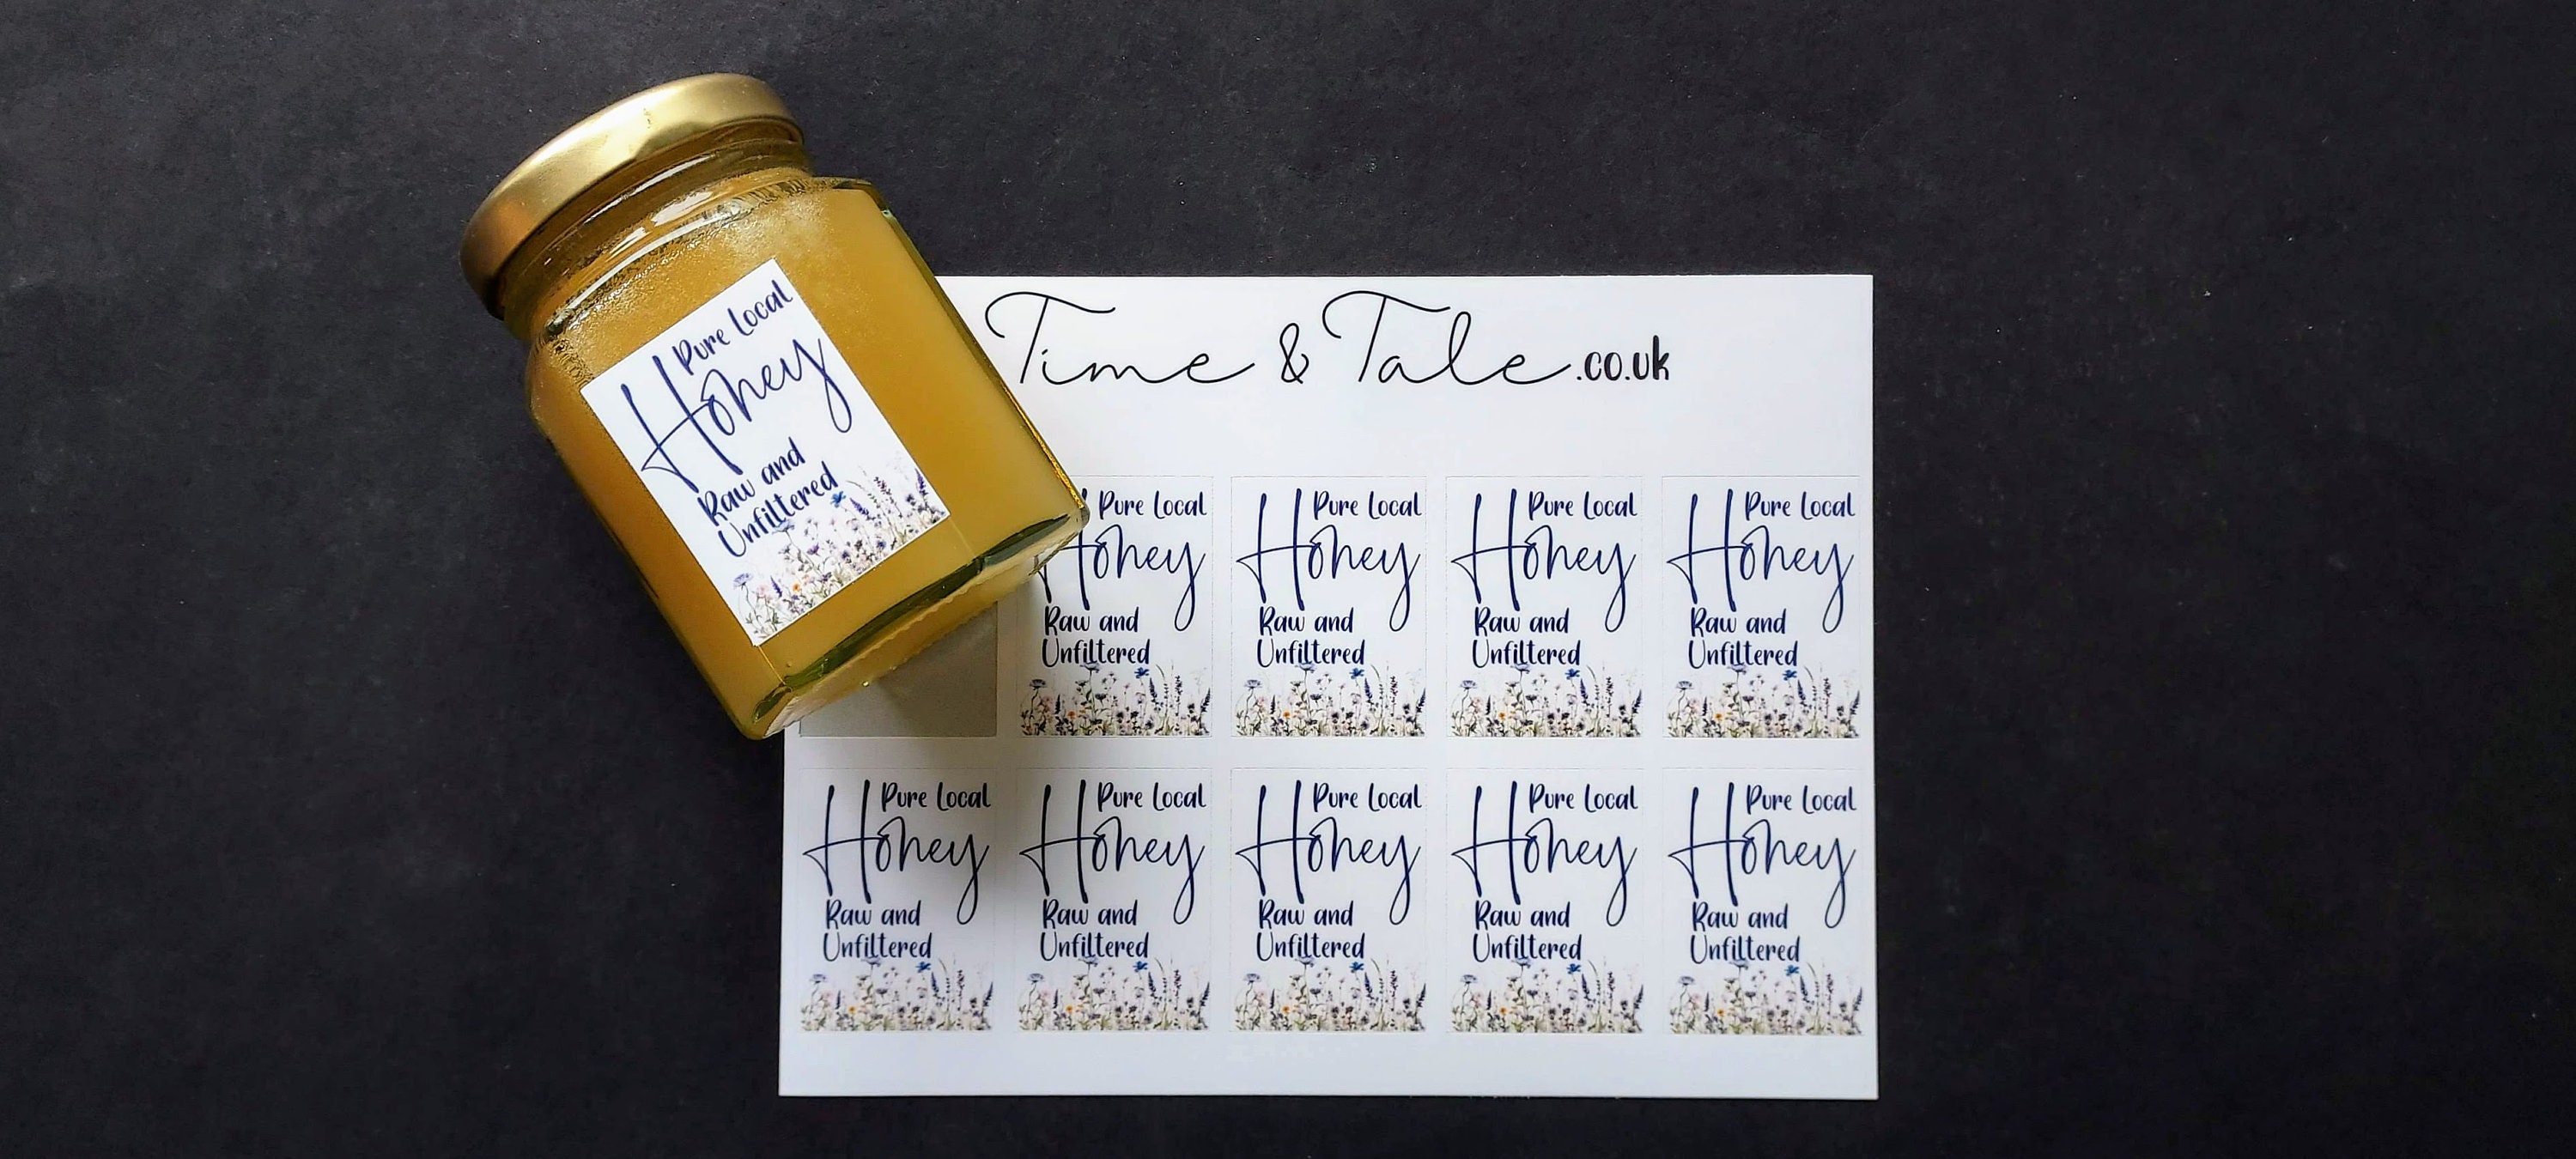 Pure Local
Honey
Raw and
Unfiltered
Time & Tale.co.uk
Pure Local
Honey
Raw and
Unfiltered
Pure Local
Honey
Raw and
Unfiltered
Pure Local
Honey
Raw and
Unfiltered
Pure Local
Honey
Raw and
Unfiltered
Pure Local
Honey
Raw and
Unfiltered
Pure Local
Honey
Raw and
Unfiltered
Pure Local
Honey
Raw and
Unfiltered
Pure Local
Honey
Raw and
Unfiltered
Pure Local
Honey
Raw and
Unfiltered